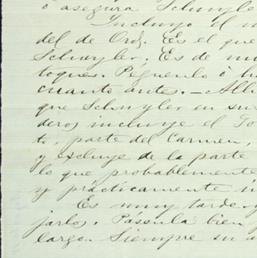 ó asegura Schuyler
Incluyo el
del de Ord. Es el que
Schuyler. Es de
toques. Péguenlo ó
cuanto antes. — Allí
que Schuyler en su
deros incluye el
to, parte del Carmen,
y excluye de la parte
lo que probablemente
y prácticamente
Es muy tarde y
jarlos. Pásenla bien
largo. Siempre su